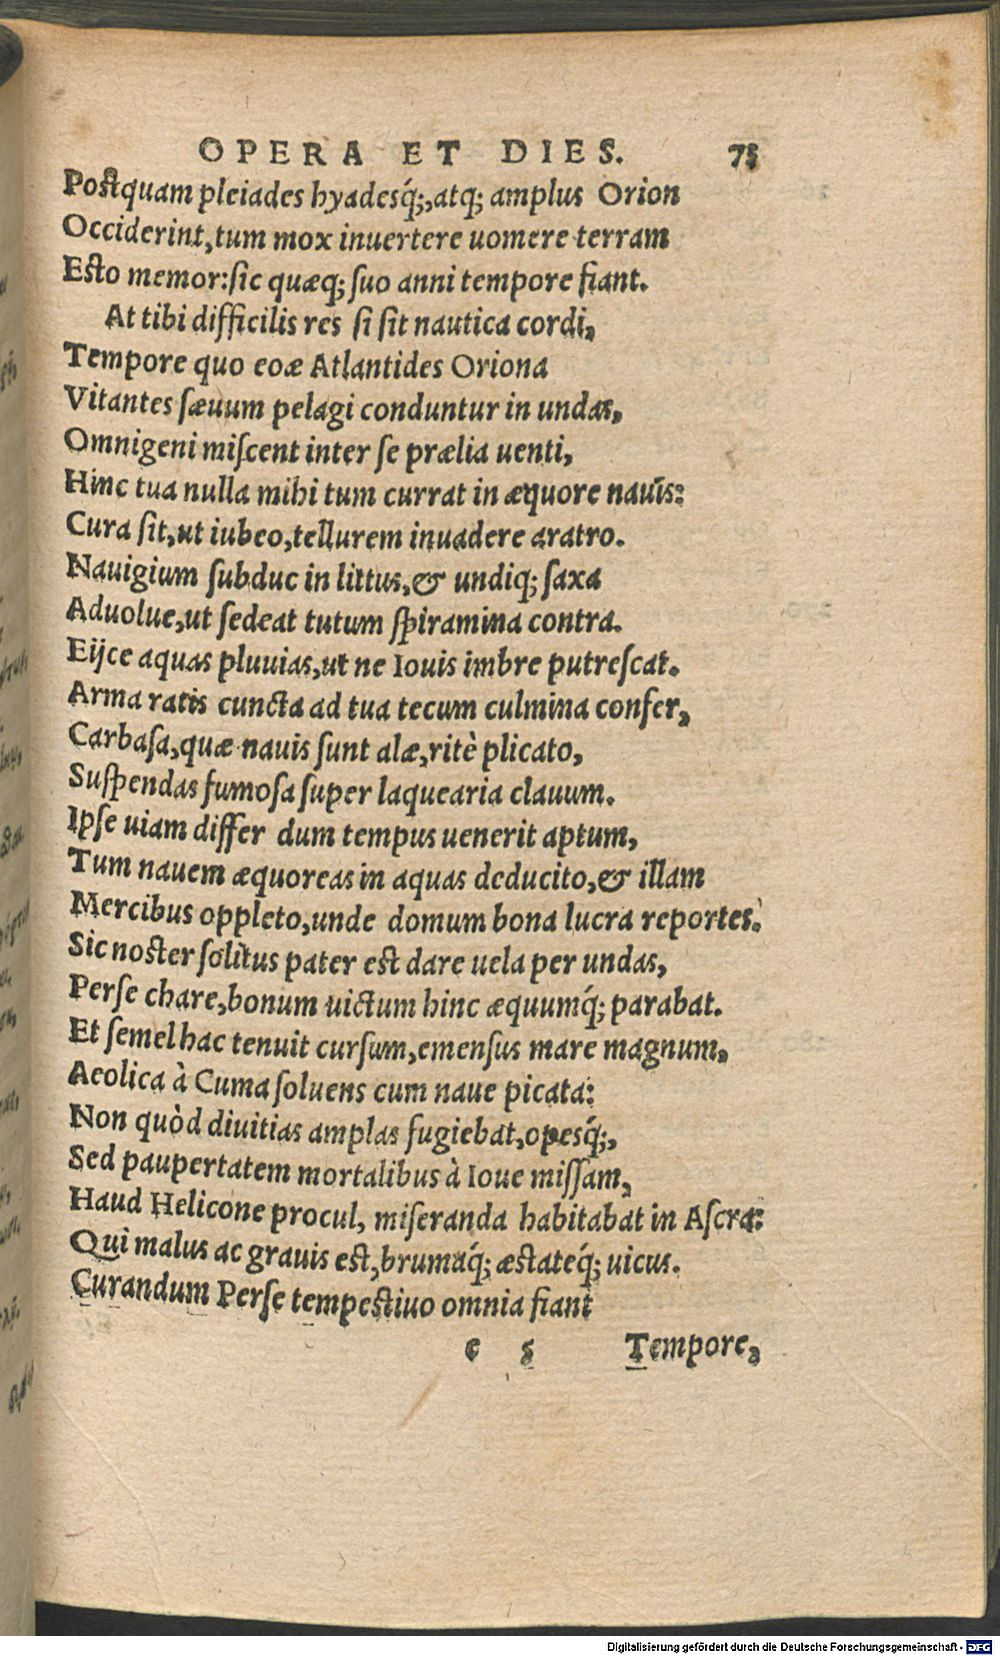 OPERA ET DIES. 73
Postquam pleiades hyadesq́;, atq; amplus Orion
Occiderint, tum mox inuertere uomere terram
Esto memor: sic quæq; suo anni tempore fiant.
At tibi difficilis res si sit nautica cordi,
Tempore quo eoæ Atlantides Oriona
Vitantes sæuum pelagi conduntur in undas,
Omnigeni miscent inter se prælia uenti,
Hinc tua nulla mihi tum currat in æquore nauis:
Cura sit, ut iubeo, tellurem inuadere aratro.
Nauigium subduc in littus, & undiq; saxa
Aduolue, ut sedeat tutum spiramina contra.
Eijce aquas pluuias, ut ne Iouis imbre putrescat.
Arma ratis cuncta ad tua tecum culmina confer,
Carbasa, quæ nauis sunt alæ, ritè plicato,
Suspendas fumosa super laquearia clauum.
Ipse uiam differ dum tempus uenerit aptum,
Tum nauem æquoreas in aquas deducito, & illam
Mercibus oppleto, unde domum bona lucra reportes.
Sic noster solitus pater est dare uela per undas,
Perse chare, bonum uictum hinc æquumq́; parabat.
Et semel hac tenuit cursum, emensus mare magnum,
Aeolica à Cuma soluens cum naue picata:
Non quòd diuitias amplas fugiebat, opesq́;,
Sed paupertatem mortalibus à Ioue missam,
Haud Helicone procul, miseranda habitabat in Ascra:
Qui malus ac grauis est, brumaq́; æstateq́; uicus.
Curandum Perse tempestiuo omnia fiant
e 5 Tempore,
Digitalisierung gefördert durch die Deutsche Forschungsgemeinschaft - DFG